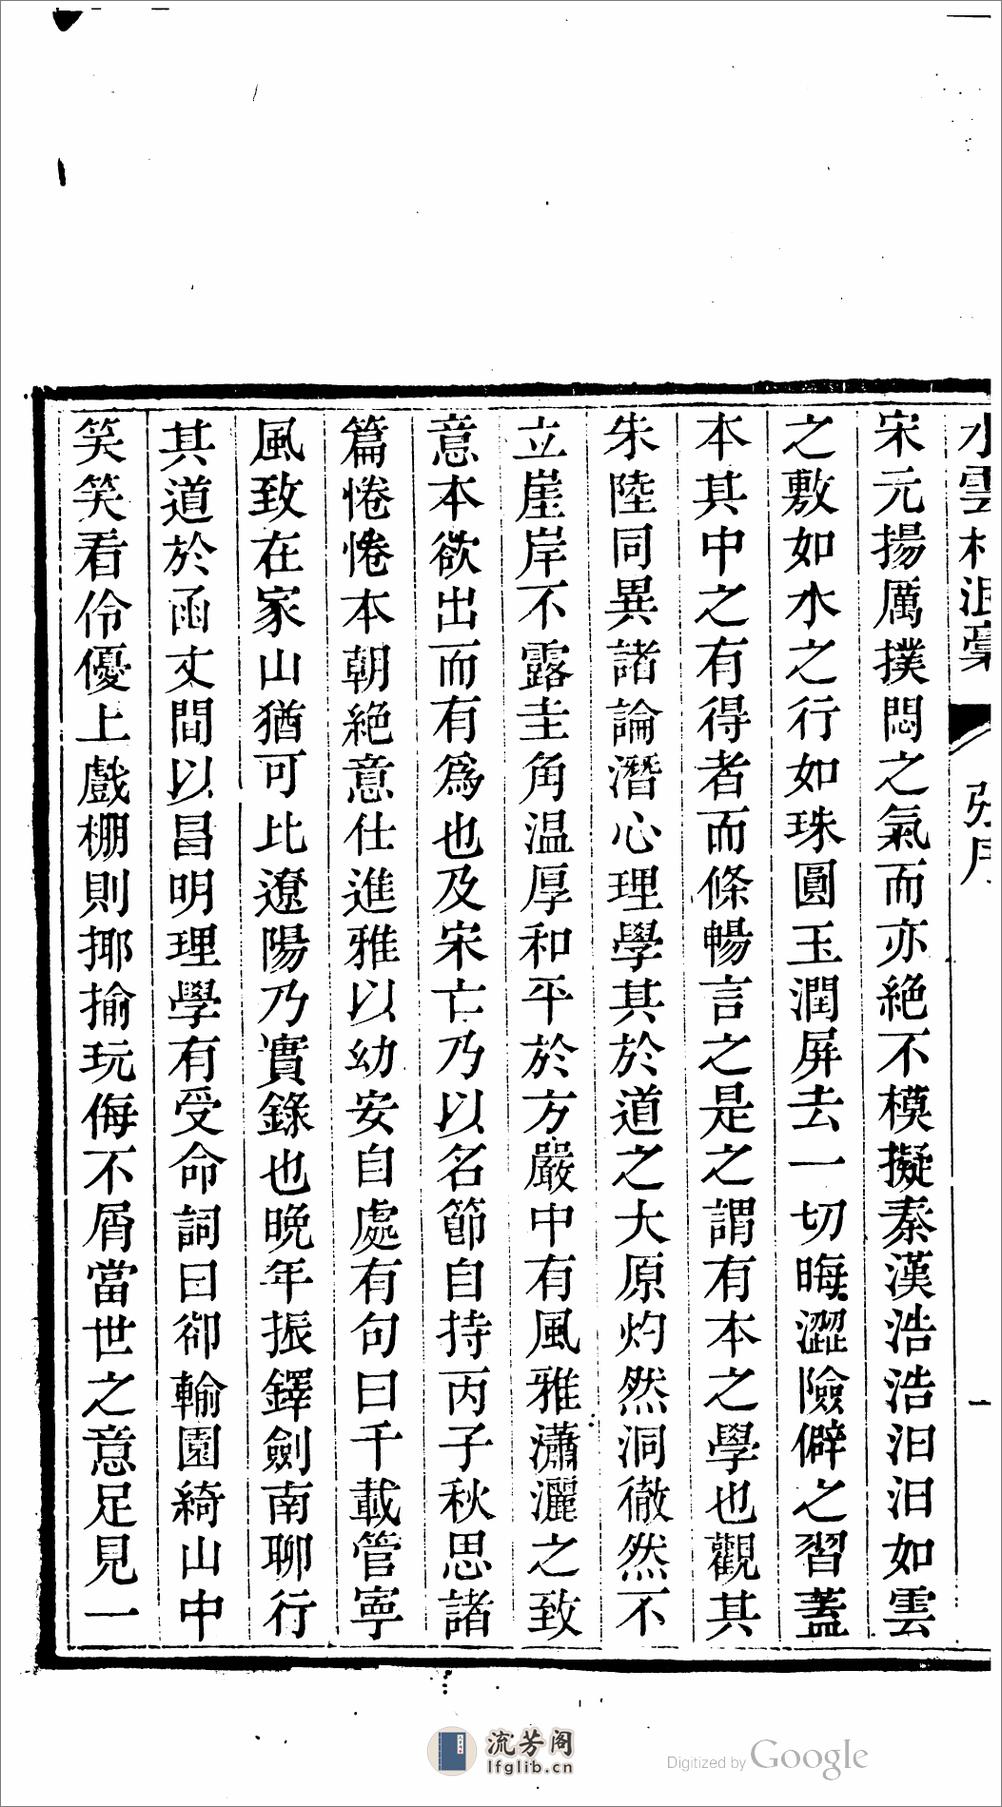 宋元揚厲撲悶之氣而亦絕不模擬秦漢浩浩汩汩如雲
之敷如水之行如珠圓玉潤屏去一切晦澀險僻之習蓋
本其中之有得者而條暢言之是之謂有本之學也觀其
朱陸同異諸論潛心理學其於道之大原灼然洞徹然不
立崖岸不露圭角温厚和平於方嚴中有風雅瀟灑之致
意本欲出而有爲也及宋亡乃以名節自持丙子秋思諸
篇惓惓本朝絕意仕進雅以幼安自處有句曰千載管寧
風致在家山猶可比遼陽乃實錄也晚年振鐸劍南聊行
其道於函丈間以昌明理學有受命詞曰卻輸園綺山中
笑笑看伶優上戲棚則揶揄玩侮不屑當世之意足見一
流芳阁
lfglib.cn
Digitized by Google